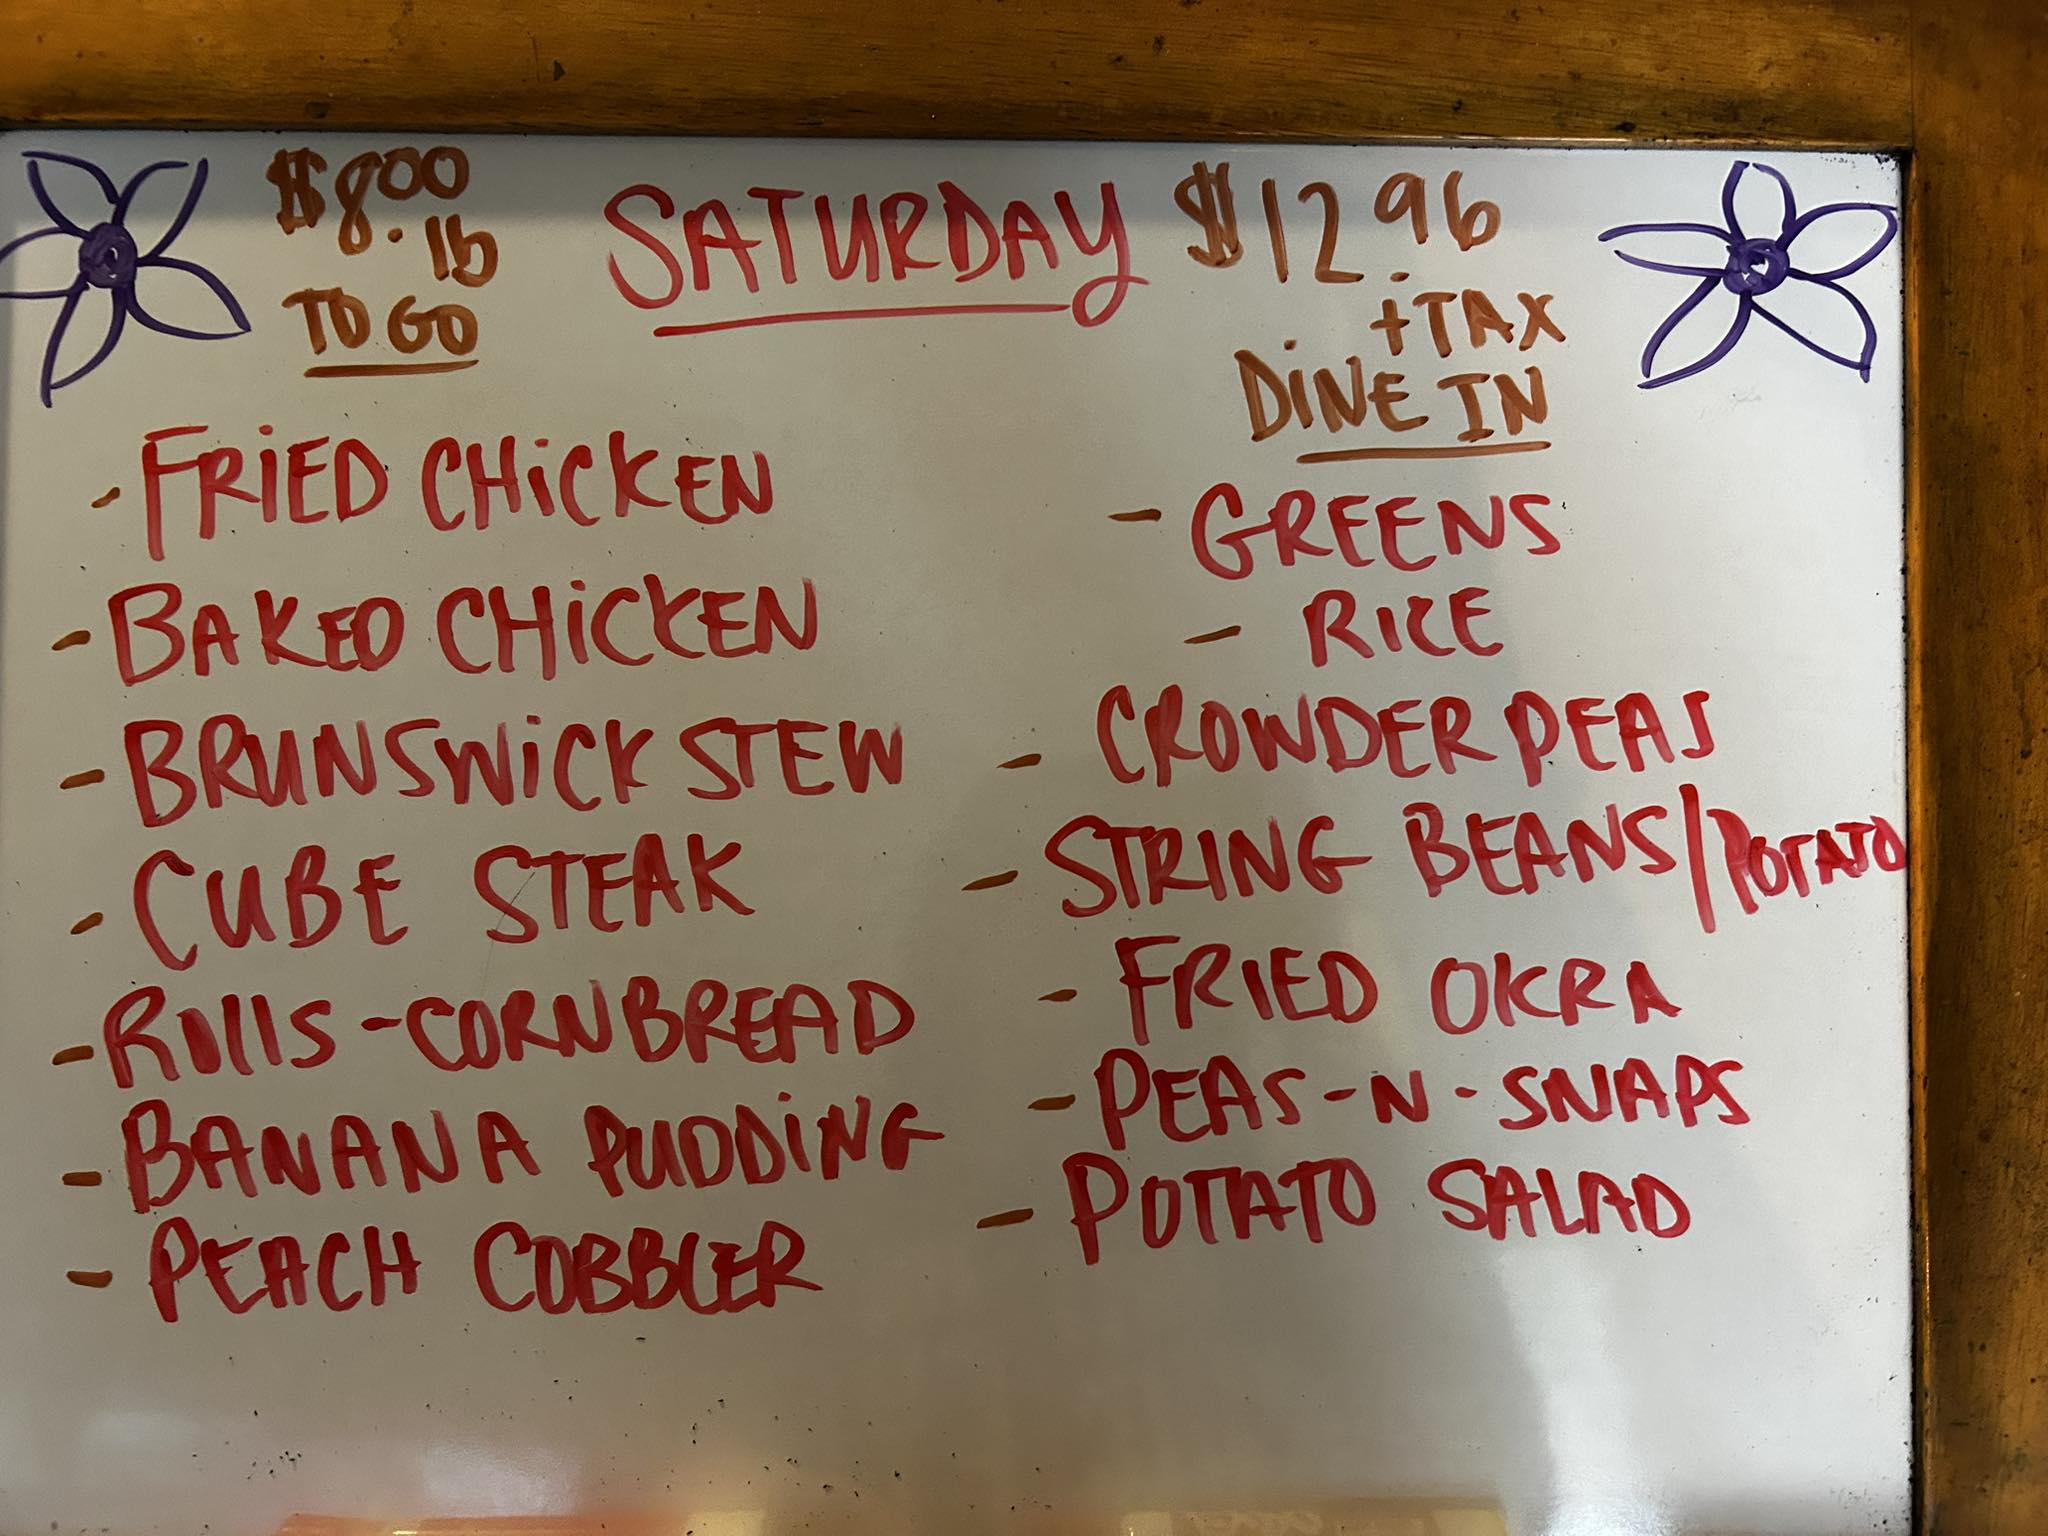 $8.00
lb
TO GO
SATURDAY
$12.96
+TAX
DINE IN
- FRIED CHICKEN
- BAKED CHICKEN
- BRUNSWICK STEW
- CUBE STEAK
- ROllS - CORNBREAD
- BANANA PUDDING
- PEACH COBBLER
- GREENS
- RICE
- CROWDER PEAS
- STRING BEANS/POTATO
- FRIED OKRA
- PEAS-N-SNAPS
- POTATO SALAD